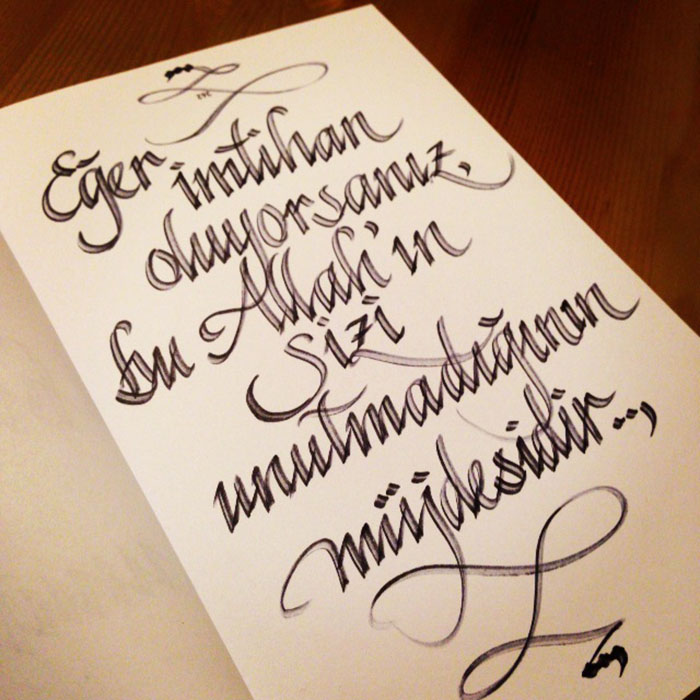 Eğer imtihan
oluyorsanız,
bu Allah'ın
Sizi
unutmadığının
müjdesidir..,